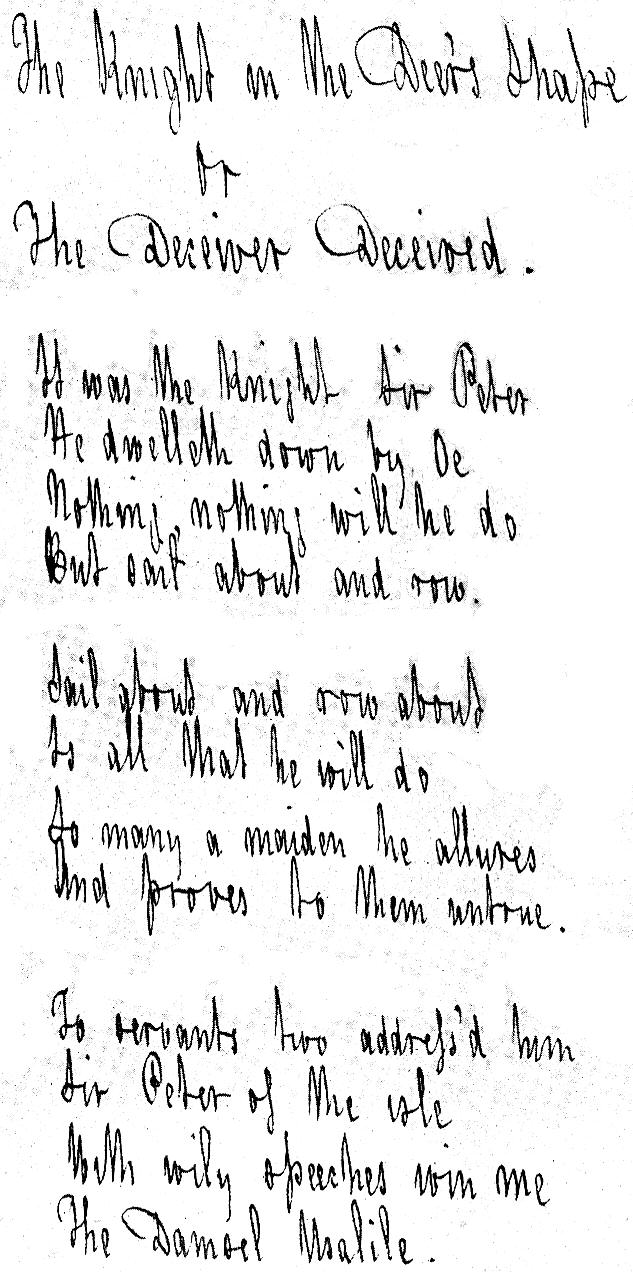 The Knight in the Deer's Shape
or
The Deceiver Deceived.
It was the Knight Sir Peter
He dwelleth down by Oe
Nothing, nothing will he do
But sail about and row.
Sail about and row about
Is all that he will do
So many a maiden he allures
And proves to them untrue.
To servants two address'd him
Sir Peter of the isle
With wily speeches win me
The Damsel Usalile.